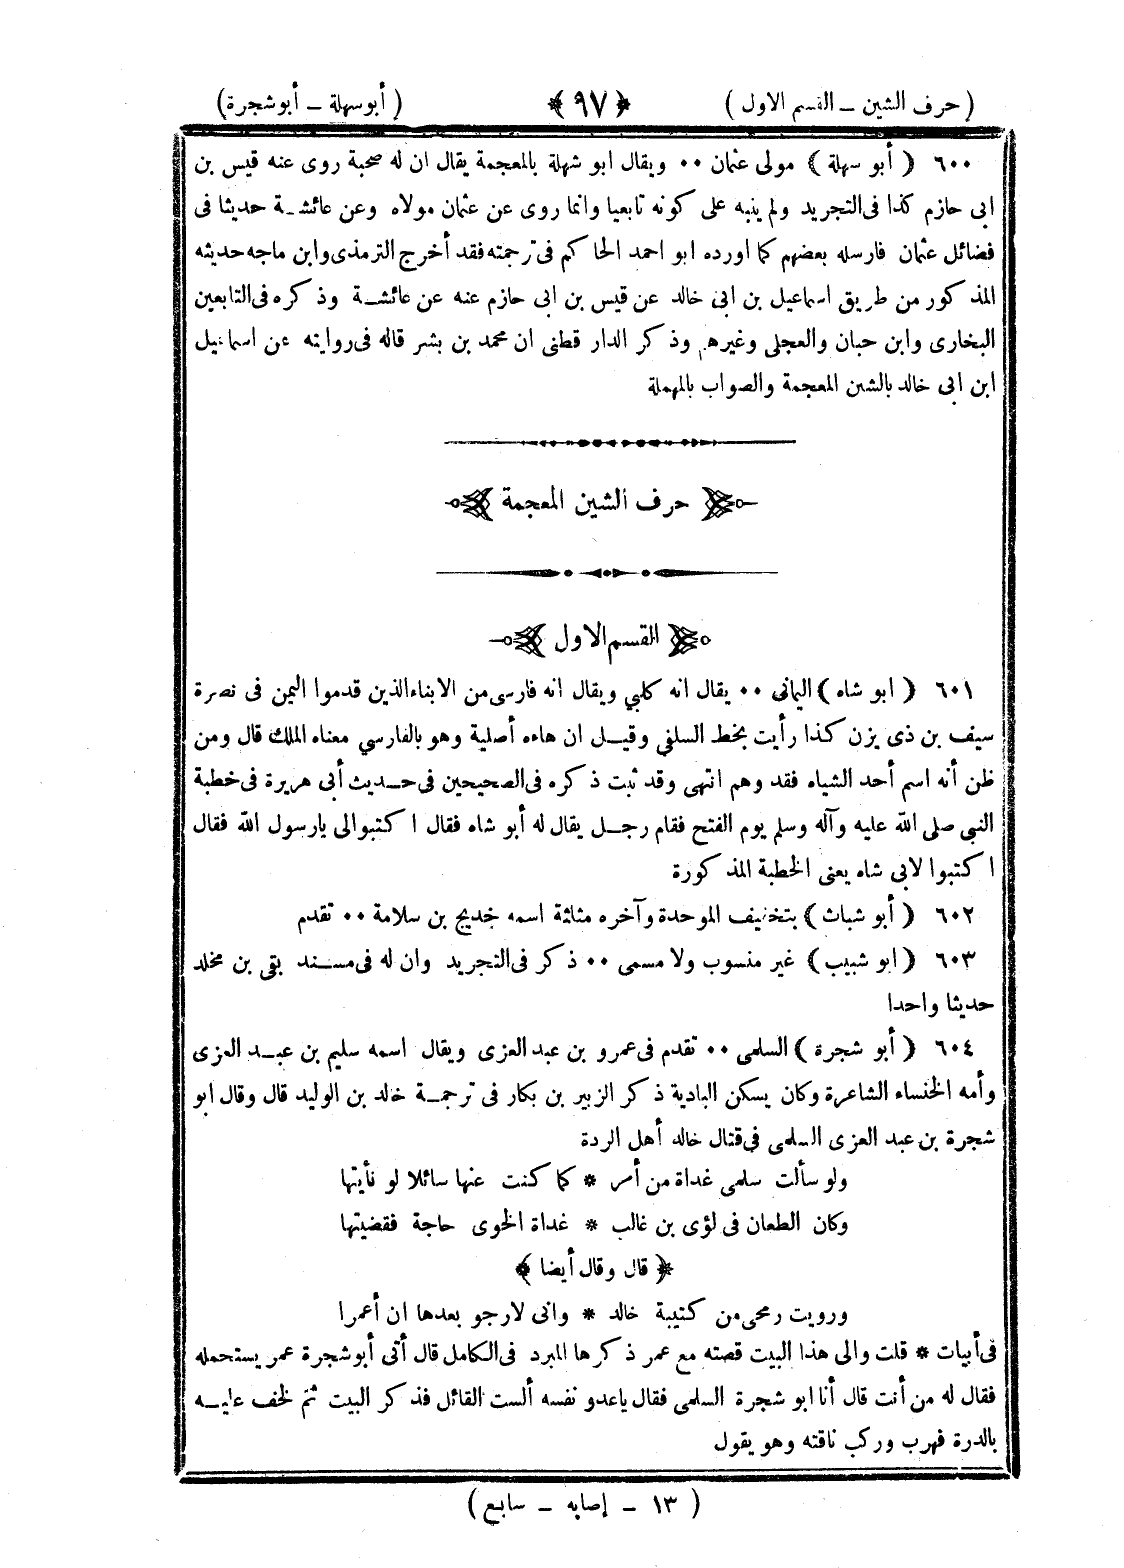 ( حرف الشين ــ القسم الاول ) ﴿ ٩٧ ﴾ ( أبوسهلة ــ أبوشجرة )
٦٠٠ ( أبو سهلة ) مولى عثمان ٠٠ ويقال ابو شهلة بالمعجمة يقال ان له صحبة روى عنه قيس بن
ابى حازم كذا فى التجريد ولم ينبه على كونه تابعيا وانما روى عن عثمان مولاه وعن عائشة حديثا فى
فضائل عثمان فارسله بعضهم كما اورده ابو احمد الحاكم فى ترجمته فقد أخرج الترمذى وابن ماجه حديثه
المذكور من طريق اسماعيل بن ابى خالد عن قيس بن ابى حازم عنه عن عائشة وذكره فى التابعين
البخارى وابن حبان والعجلى وغيرهم وذكر الدار قطنى ان محمد بن بشر قاله فى روايته عن اسماعيل
ابن ابى خالد بالشين المعجمة والصواب بالمهملة
حرف الشين المعجمة
القسم الاول
٦٠١ ( ابو شاه ) اليمانى ٠٠ يقال انه كلبي ويقال انه فارسى من الابناء الذين قدموا اليمن فى نصرة
سيف بن ذى يزن كذا رأيت بخط السلفي وقيل ان هاءه أصلية وهو بالفارسي معناه الملك قال ومن
ظن أنه اسم أحد الشياه فقد وهم انتهى وقد ثبت ذكره فى الصحيحين فى حديث أبى هريرة فى خطبة
النبى صلى الله عليه وآله وسلم يوم الفتح فقام رجل يقال له أبو شاه فقال اكتبوا لى يارسول الله فقال
اكتبوا لابى شاه يعنى الخطبة المذكورة
٦٠٢ ( أبو شباث ) بتخفيف الموحدة وآخره مثلثة اسمه خديج بن سلامة ٠٠ تقدم
٦٠٣ ( ابو شبيب ) غير منسوب ولا مسمى ٠٠ ذكر فى التجريد وان له فى مسند بقى بن مخلد
حديثا واحدا
٦٠٤ ( أبو شجرة ) السلمى ٠٠ تقدم فى عمرو بن عبد العزى ويقال اسمه سليم بن عبد العزى
وأمه الخنساء الشاعرة وكان يسكن البادية ذكر الزبير بن بكار فى ترجمة خالد بن الوليد قال وقال ابو
شجرة بن عبد العزى السلمى فى قتال خالد أهل الردة
ولو سألت سلمى غداة من أمر * كما كنت عنها سائلا لو نأيتها
وكان الطعان فى لؤى بن غالب * غداة الخوى حاجة فقضيتها
﴿ قال وقال أيضا ﴾
ورويت رمحى من كتيبة خالد * وانى لارجو بعدها ان أعمرا
فى أبيات * قلت والى هذا البيت قصته مع عمر ذكرها المبرد فى الكامل قال أتى أبو شجرة عمر يستحمله
فقال له من أنت قال أنا ابو شجرة السلمى فقال ياعدو نفسه ألست القائل فذكر البيت ثم لخف عليه
بالدرة فهرب وركب ناقته وهو يقول
( ١٣ ــ إصابه ــ سابع )